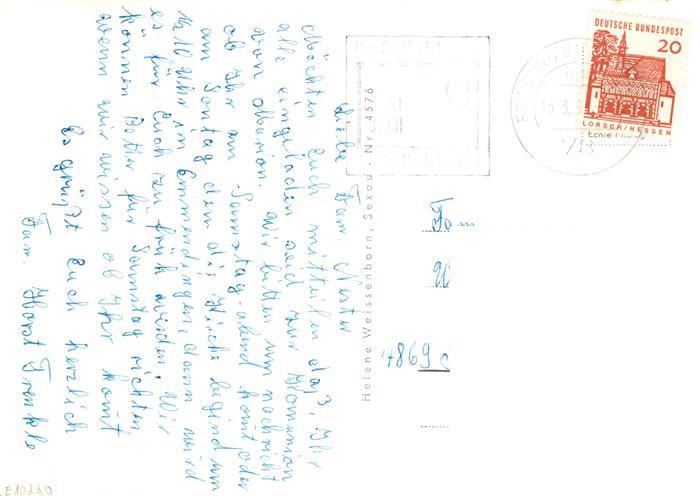 Liebe Fam Nester
Möchten Euch mitteilen daß, Ihr
alle eingeladen seid zur Kommunion
von Marion. Wir bitten um nachricht
ob Ihr am Samstag-abend komt oder
am Sontag den die Kirche begind um
1/4 10 Uhr in Emmendingen, dann wird
es für Euch zu früh werden. Wir
können Better für Samstag richten
wenn wir wissen ob Ihr komt
Es grüßt Euch herzlich
Fam. Horst Frenkle
Helene Weissenborn, Sexau · Nr. 4576
DEUTSCHE BUNDESPOST
20
LORSCH/HESSEN
78
Fam
7869
E10220